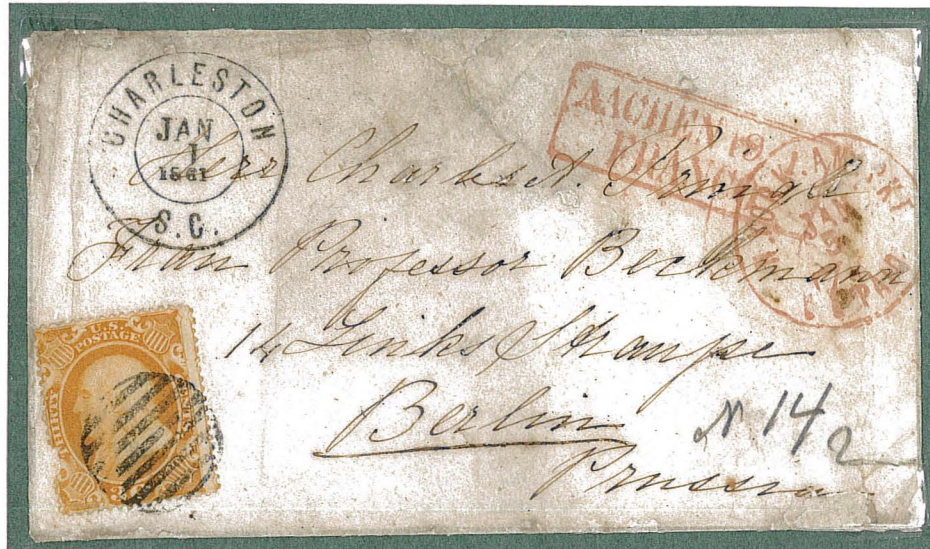 CHARLESTON
JAN
1
1861
S.C.
AACHEN 19
FRANCO
N. PKT
JAN
PAID
Herr Charles A. Pringle
Frau Professor Beckmann
14 Links Strasse
Berlin
Prussia
N 14/2
U.S. POSTAGE
THIRTY
CENTS